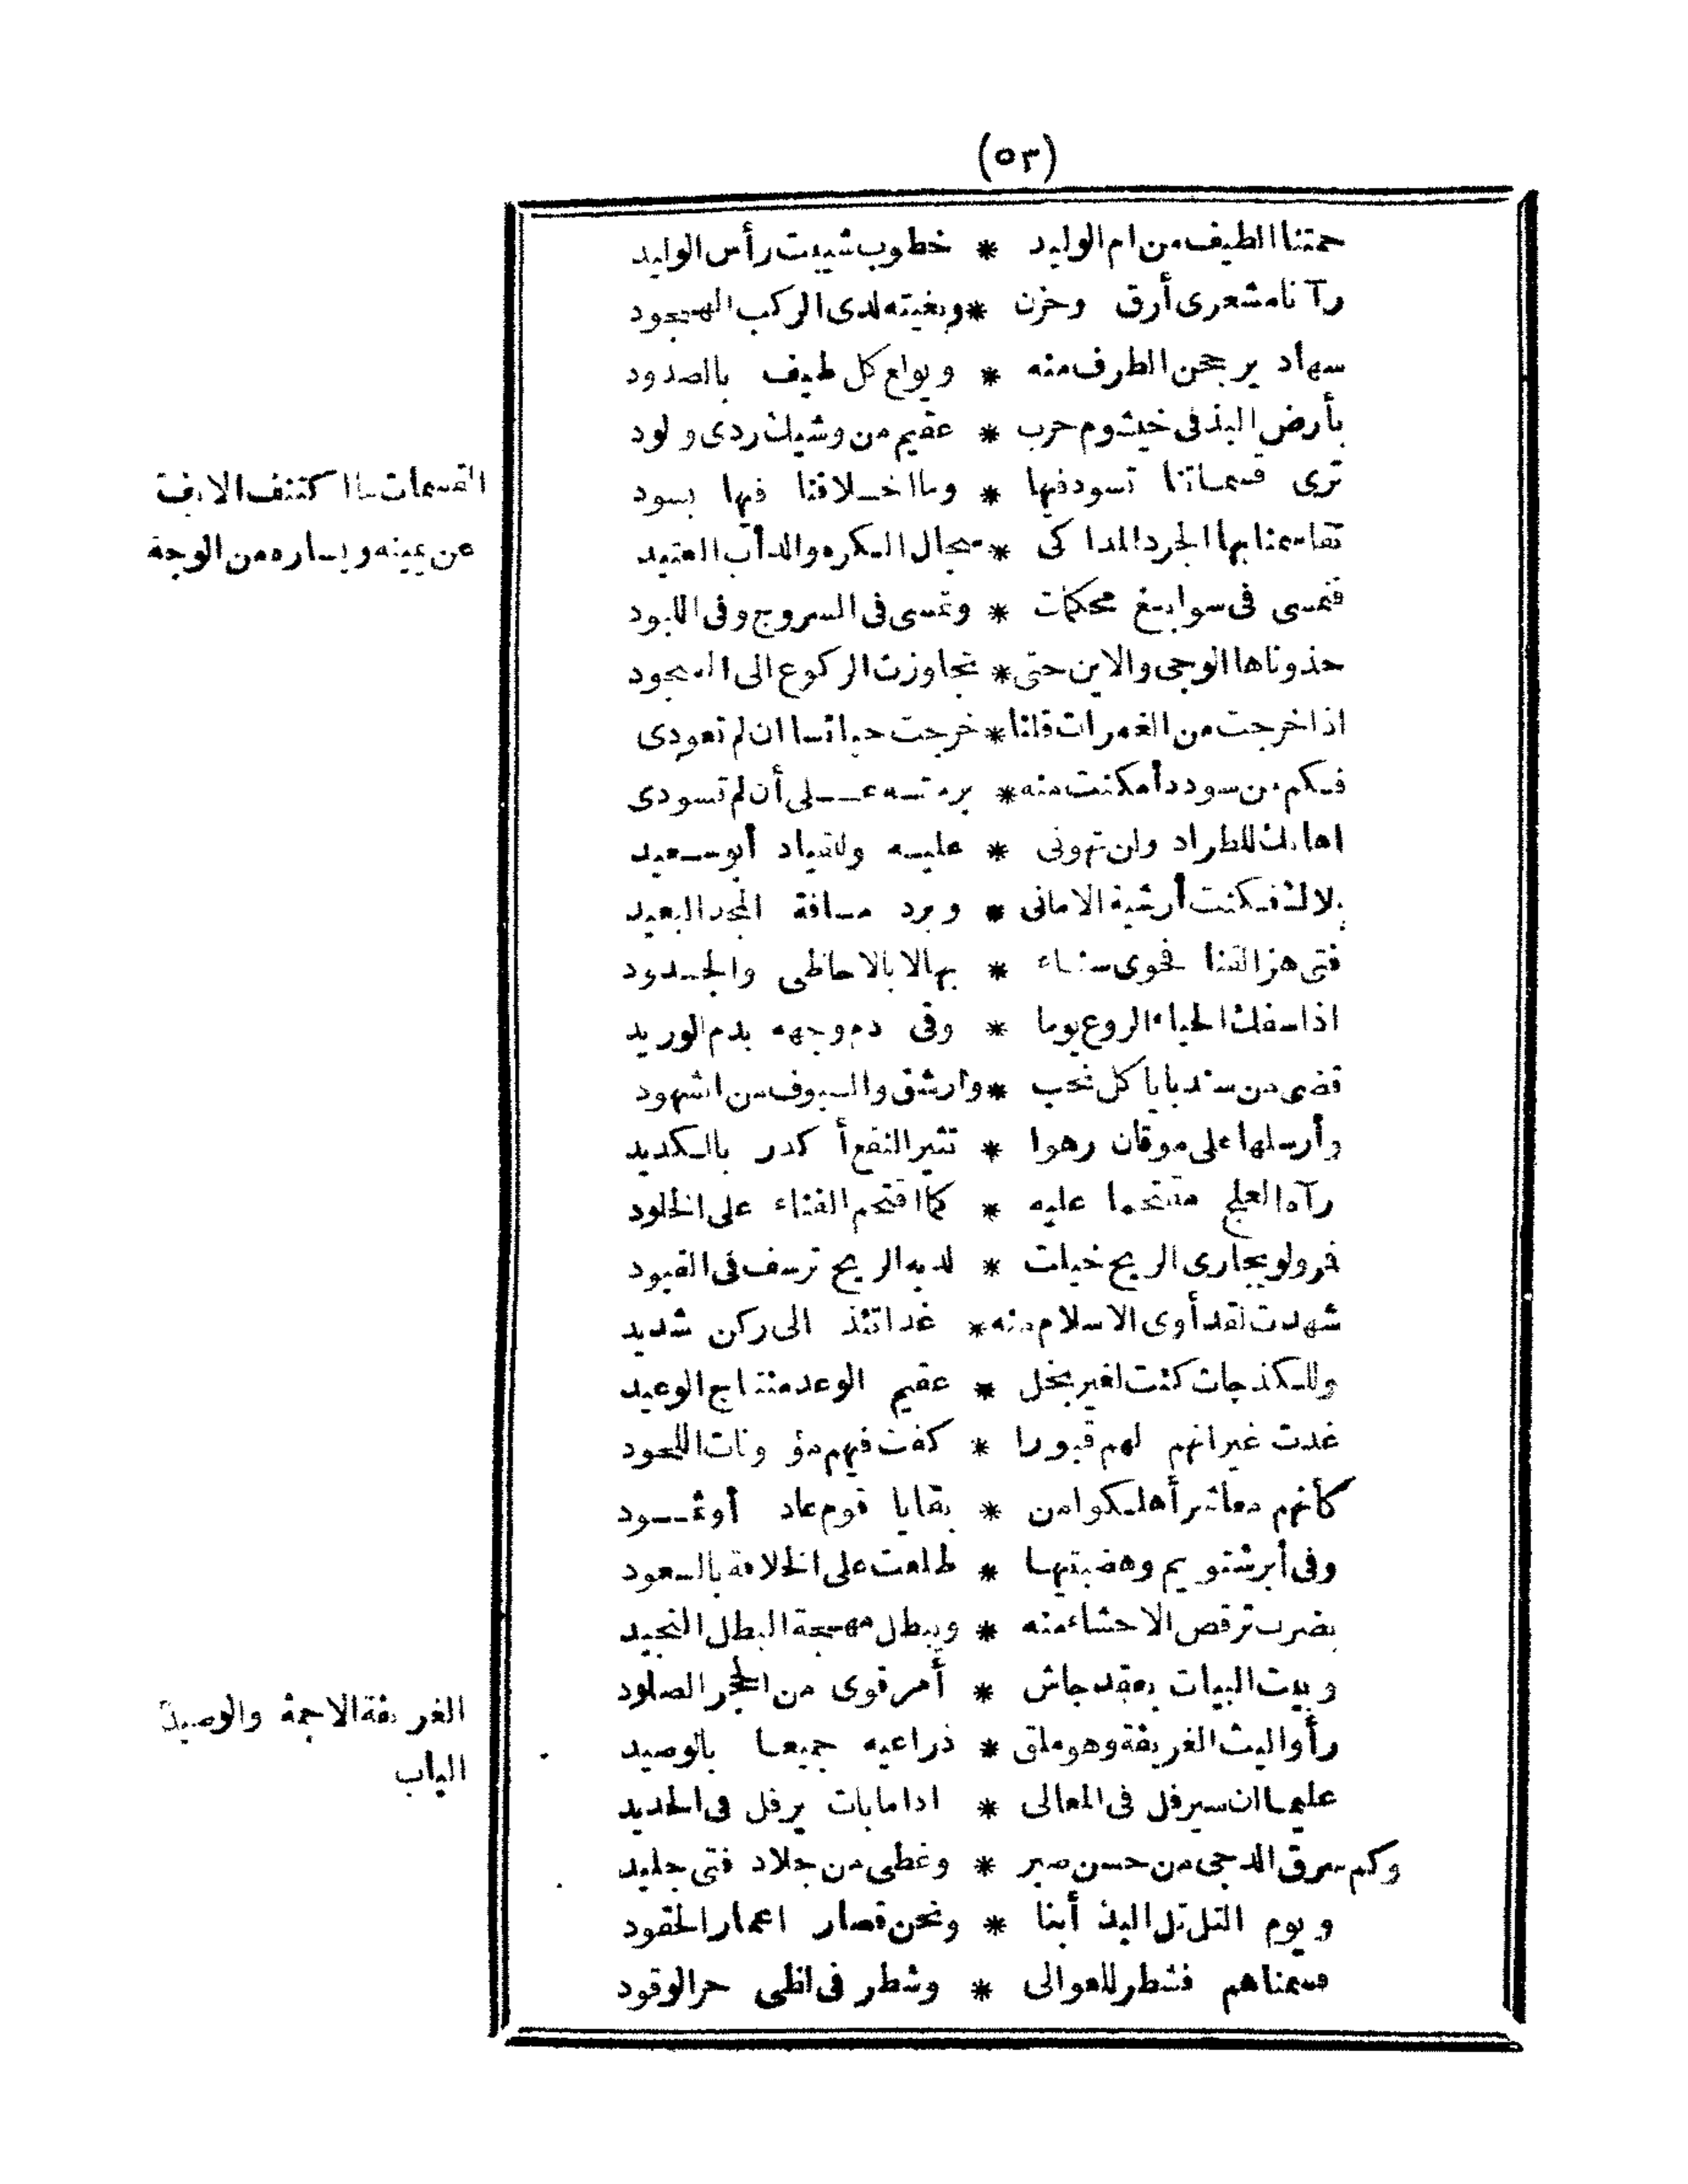 (٥٣)
حمتنا الطيف من ام الوليد * خطوب شيبت رأس الوليد
رآنا مشعرى أرق وحزن * وبغيته لدى الركب الهجود
سهاد يرجحن الطرف منه * ويولع كل طيف بالصدود
بأرض البذ فى خيشوم حرب * عقيم من وشيك ردى ولود
ترى قسماتنا تسود فيها * وما اخلاقنا فيها بسود
تقاسمنا بها الجرد المذاكى * سجال الكره والدأب العتيد
فنمسى فى سوابغ محكمات * وتمسى فى السروج وفى اللبود
حذوناها الوجى والاين حتى * تجاوزت الركوع الى السجود
اذا خرجت من الغمرات قلنا * خرجت حبائسا ان لم تعودى
فكم من سودد أمكنت منه * برمته على أن لم تسودى
اهانك للطراد ولن تهونى * عليه وللقياد أبو سعيد
بلاك فكنت أرشية الامانى * وبرد مسافة المجد البعيد
فتى هز القنا فحوى سناء * بها لا بالاحاظى والجدود
اذا سفك الحياء الروع يوما * وقى دم وجهه بدم الوريد
قضى من سندبايا كل نحب * وأرشق والسيوف من الشهود
وأرسلها على موقان رهوا * تثير النقع أكدر بالكديد
رآه العلج مقتحما عليه * كما اقتحم الفناء على الخلود
فر ولو يجارى الريح خيلت * لديه الريح ترسف فى القيود
شهدت لقد أوى الاسلام منه * غداتئذ الى ركن شديد
وللكذجات كنت لغير بخل * عقيم الوعد منتاج الوعيد
غدت غيرانهم لهم قبورا * كفت فيهم مؤونات اللحود
كأنهم معاشر أهلكوا من * بقايا قوم عاد أو ثمود
وفى أبرشتويم وهضبتيها * طلعت على الخلافة بالسعود
بضرب ترقص الاحشاء منه * ويبطل مهجة البطل النجيد
وبيت البيات بعقد جاش * أمر قوى من الحجر الصلود
رأوا ليث الغريفة وهو ملق * ذراعيه جميعا بالوصيد
عليما ان سيرفل فى المعالى * اذا ما بات يرفل فى الحديد
وكم سرق الدجى من حسن صبر * وغطى من جلاد فتى جليد
ويوم التل تل البذ أبنا * ونحن قصار اعمار الحقود
قسمناهم فشطر للعوالى * وشطر فى لظى حر الوقود
القسمات ما اكتنف الانف
عن يمينه ويساره من الوجه
الغريفة الاجمة والوصيد
الباب